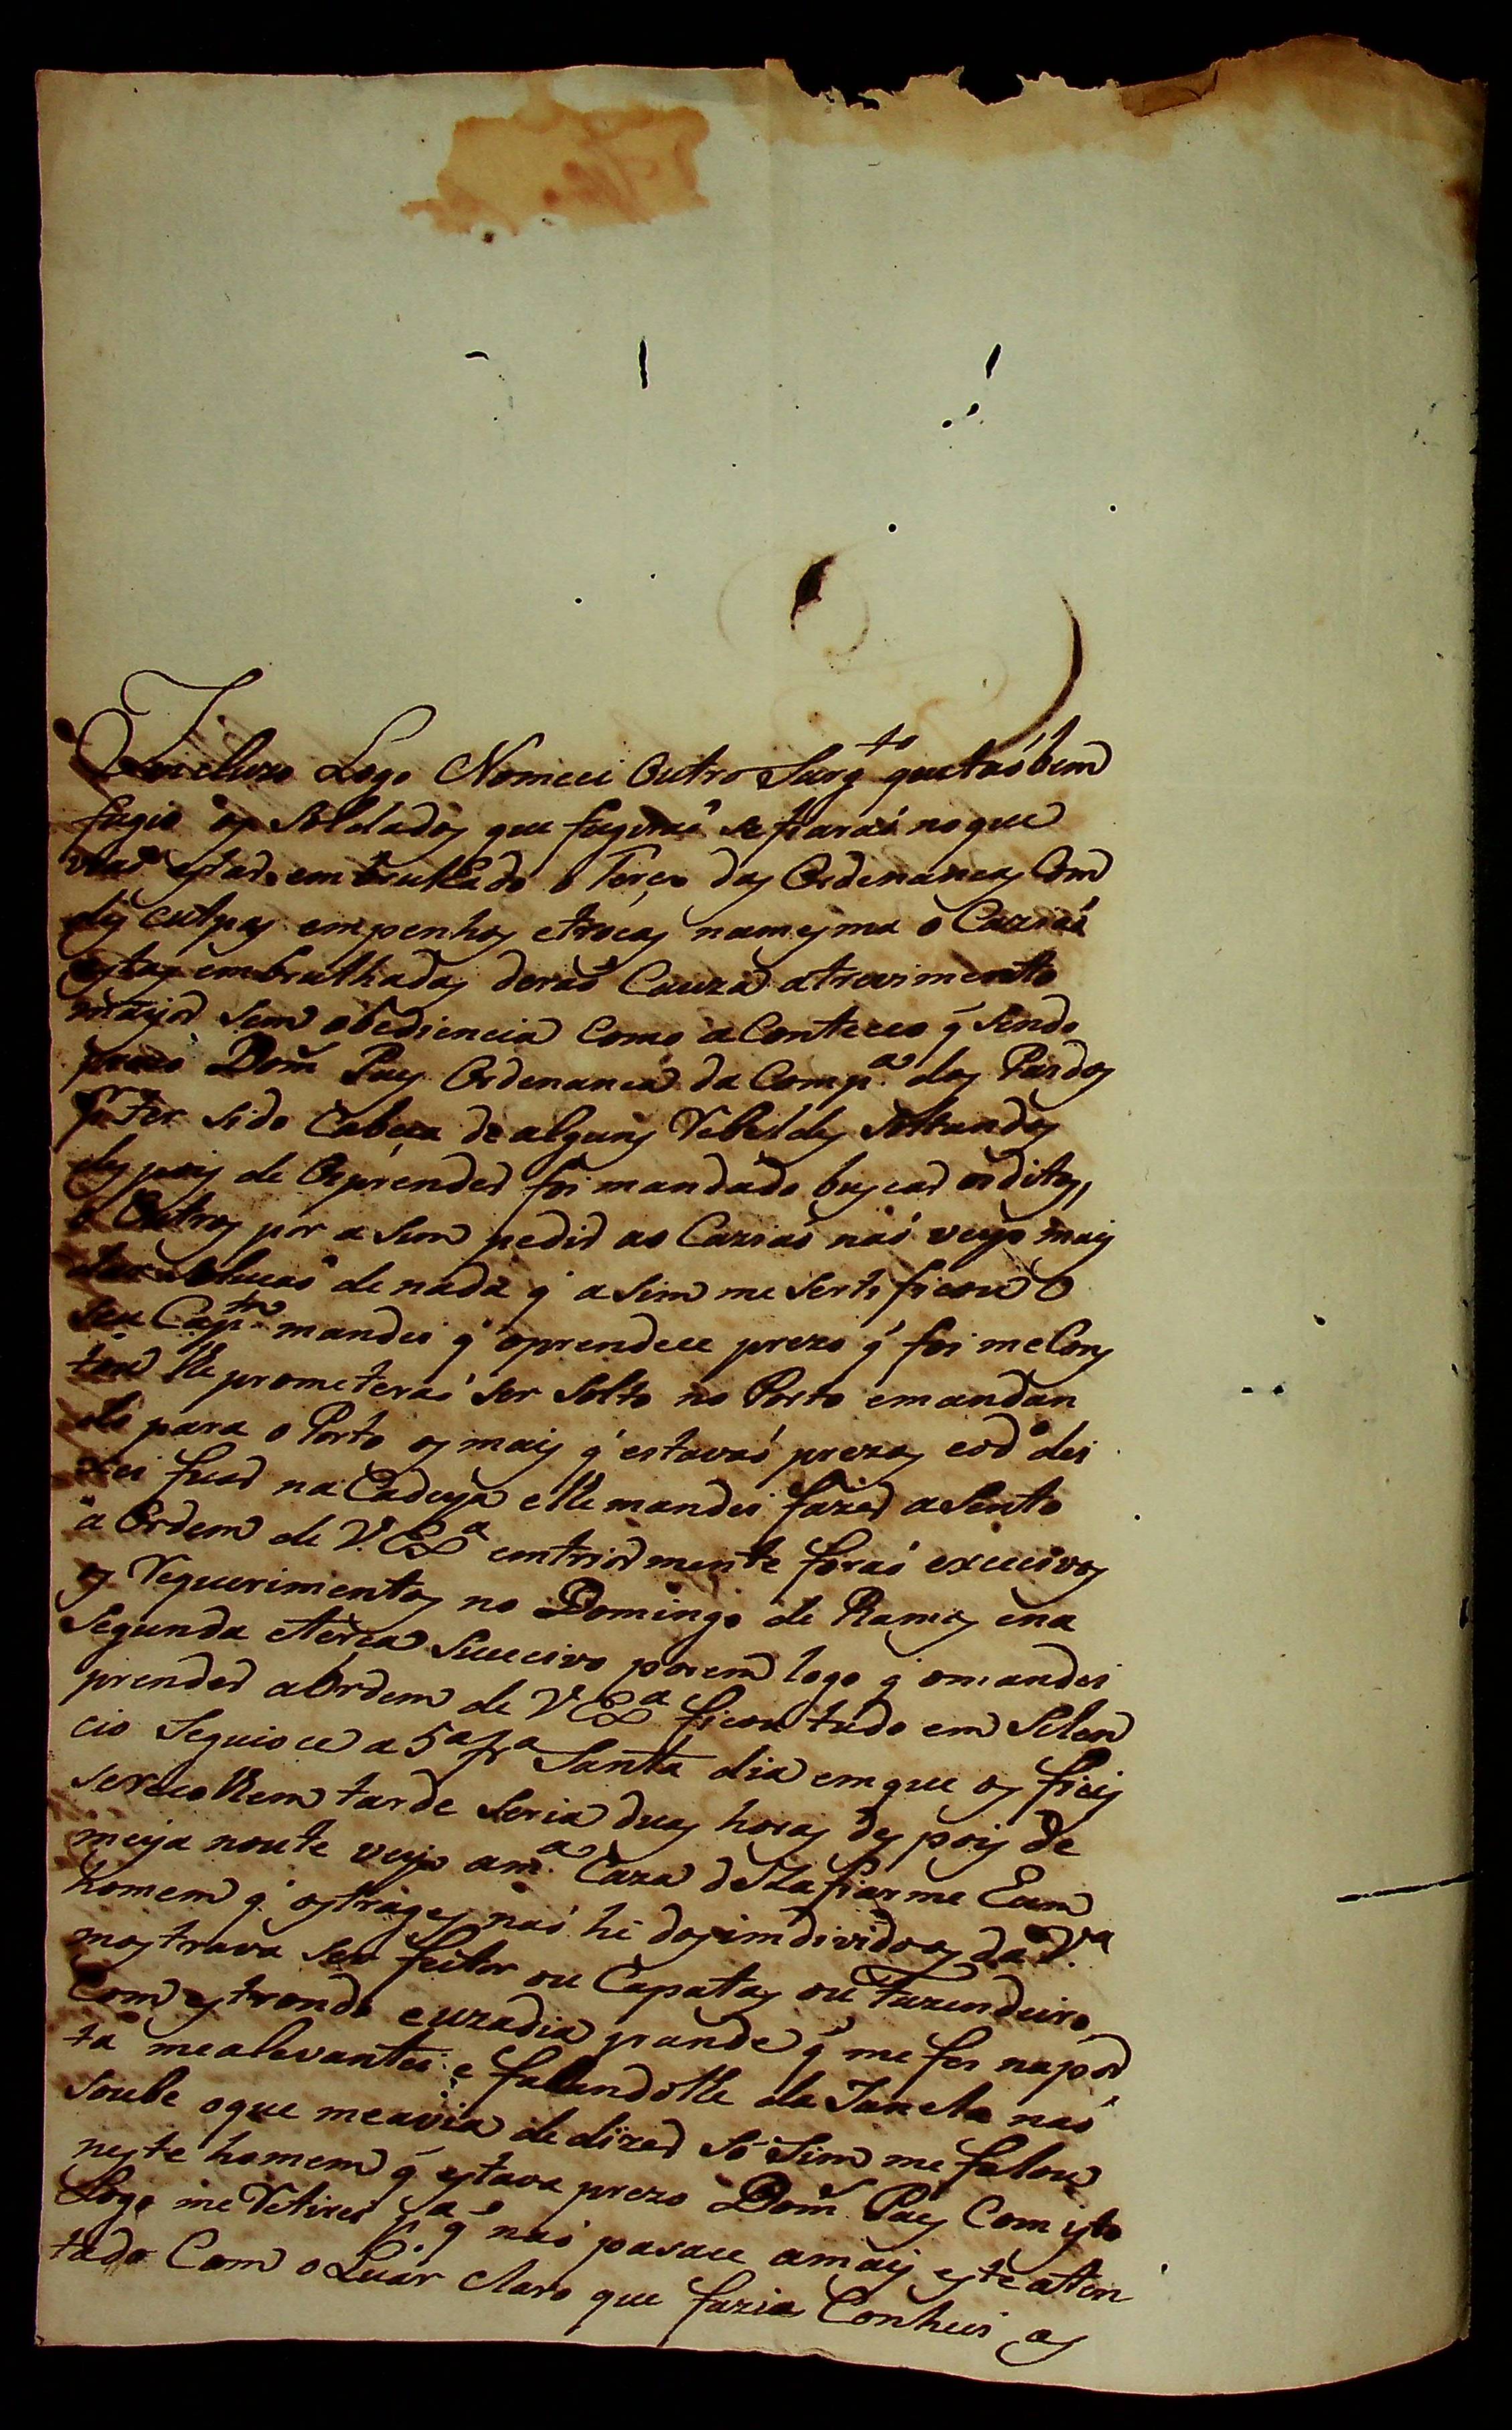 Incluzo Logo Nomeei Outro Sarg.to que taóbem
fugio os Soldados que fugiraó se fiaraó no que
viaó estar embrulhado o Terço das Ordenancas Com
dis cutpas empenhos etrocas namesma o Caziaó
estas embrulhadas deraó Cauza atrevimento
mayor sem obediencia Como aConteceo q̃ sendo
prezo Dom̃ Pais Ordenanca da Comp.a dos Pardos
p.r Ter sido Cabeza de alguns Rebeldes Soltandos
des pois de Os prender foi mandado buscar os ditos,
e Outros por a sim pedir ao Cazias naó veyo mais
de nada q̃ a sim me sertificou O
seu Cap.tm mandei q̃ oprendece prezo q̃ foi meCons
tou lhe prometeraó ser Solto no Porto emandan
do para o Porto os mais q̃ estavaó prezos eod.o dei
xei ficar na Cadeya elle mandei fazer aSento
a Ordem de V. Ex.a entriormente foraó excecivos
os Requerimentos no Domingo de Ramos ena
Segunda eterca Sucecivo porem logo q̃ omandei
prender aOrdem de V Ex.a ficou tudo em Silen
cio Seguioce a 5.a fr.a Santa dia emque os fieis
serecolhem tarde seria duas horas des pois de
meya noute veyo am.a Caza deZafiarme Eum
homem q̃ ostrages naó hé dosimdividuos da V.a
mostrava ser feitor ou Capatas ou Fazendeiro,
Com estrondo euzadia grande q̃ me fes napor
ta mealevantei e falandolhe da Janela naó
soube oque meavia dedizer só sim me falou
neste homem q̃ estava prezo Dom̃ Pais Com isto
Logo me Retirei p.a q̃ naó pasace amais este aten
tado Com o Luár Claro que fazia Conheci os